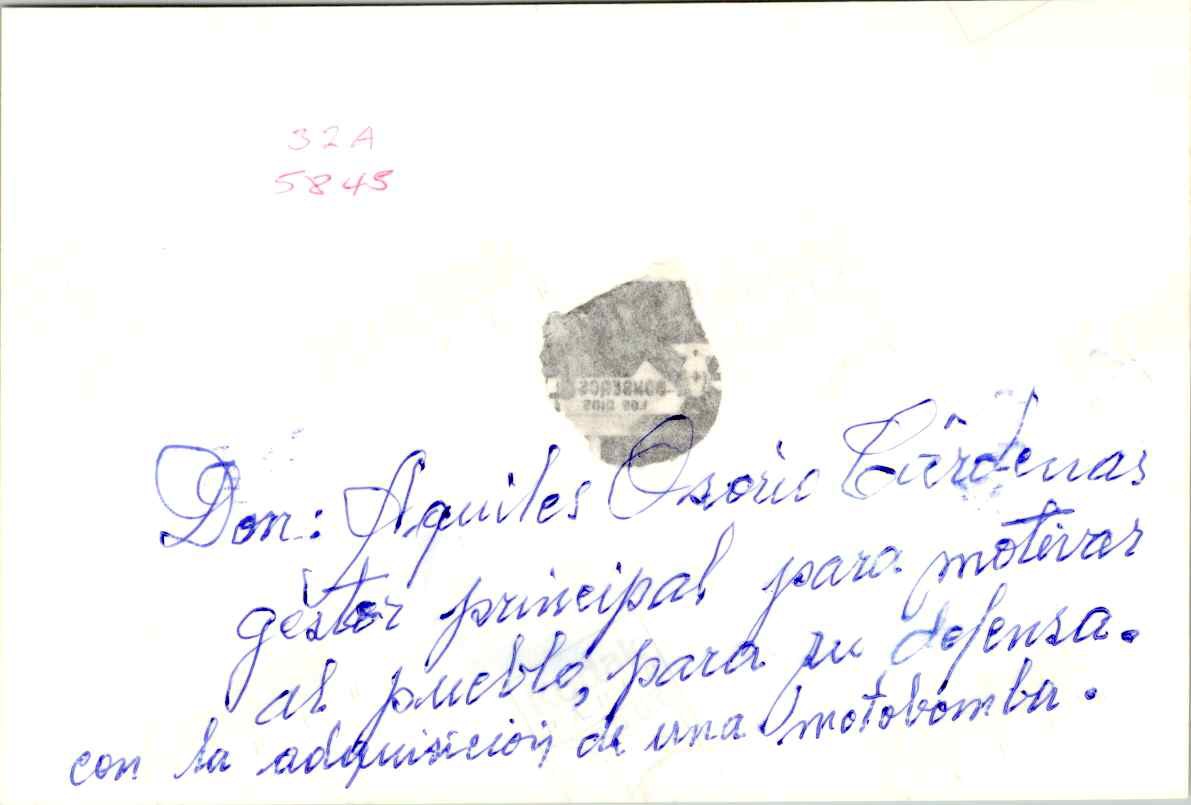 32A
5845
Don: Aquiles Osorio Cárdenas
gestor principal para motivar
al pueblo, para su defensa.
con la adquisición de una motobomba.